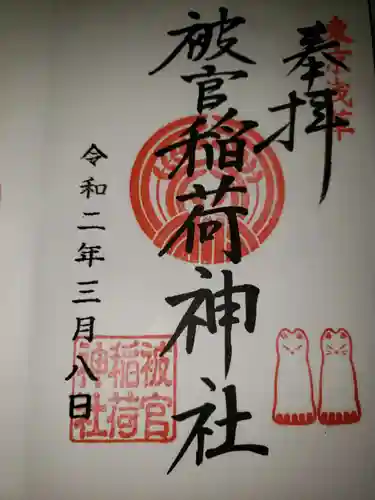 東京浅草
奉拝
被官稲荷神社
令和二年三月八日
被官
稲荷
神社